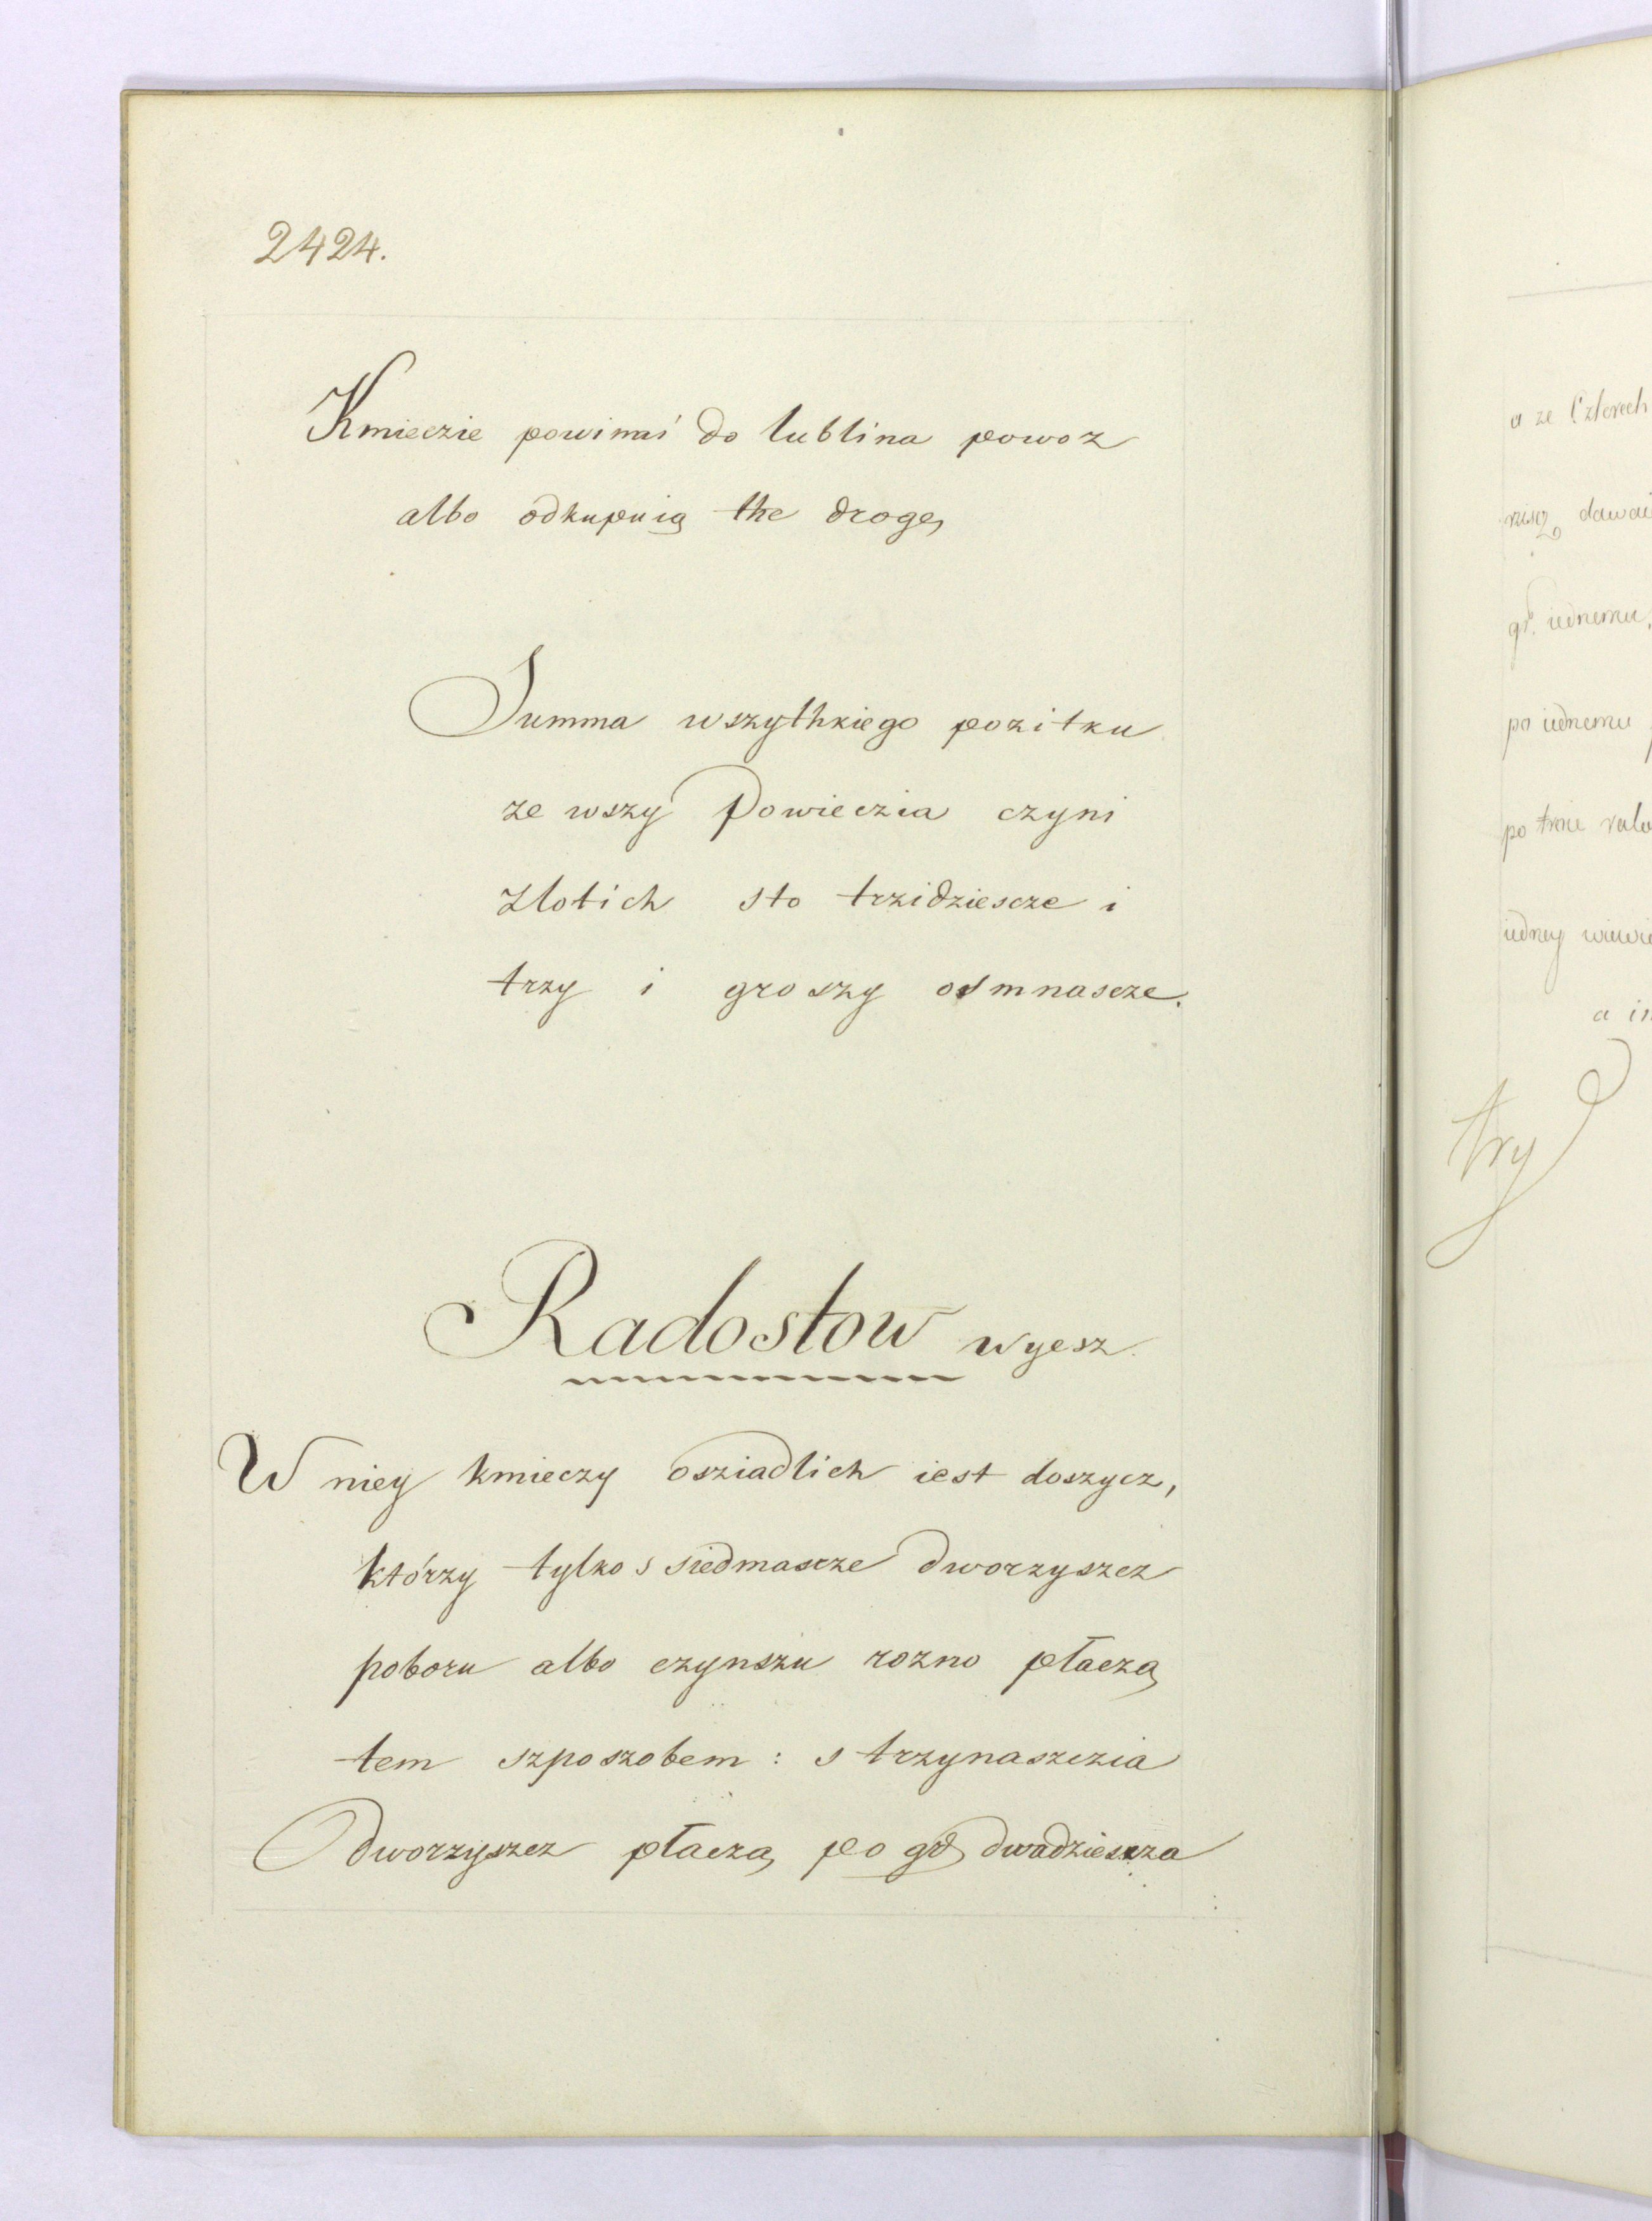 2424.
Kmieczie powinni do lublina powoz
albo odkupuią the drogę
Summa wszythkiego pozitku
ze wszy Powieczia czyni
zlotich sto trzidziescze i
trzy i groszy osmnascze.
Radostow wyesz.
W niey kmieczy osziadlich iest doszycz,
którzy tylko s siedmascze dworzyszcz
poboru albo czynszu rozno płaczą
tem szposzobem: s trzynaszczia
Dworzyszcz płaczą po gr dwadziescza
a ze Czterech
dawai
gr. iednemu,
po iednemu
po trone
iedney
a in
try